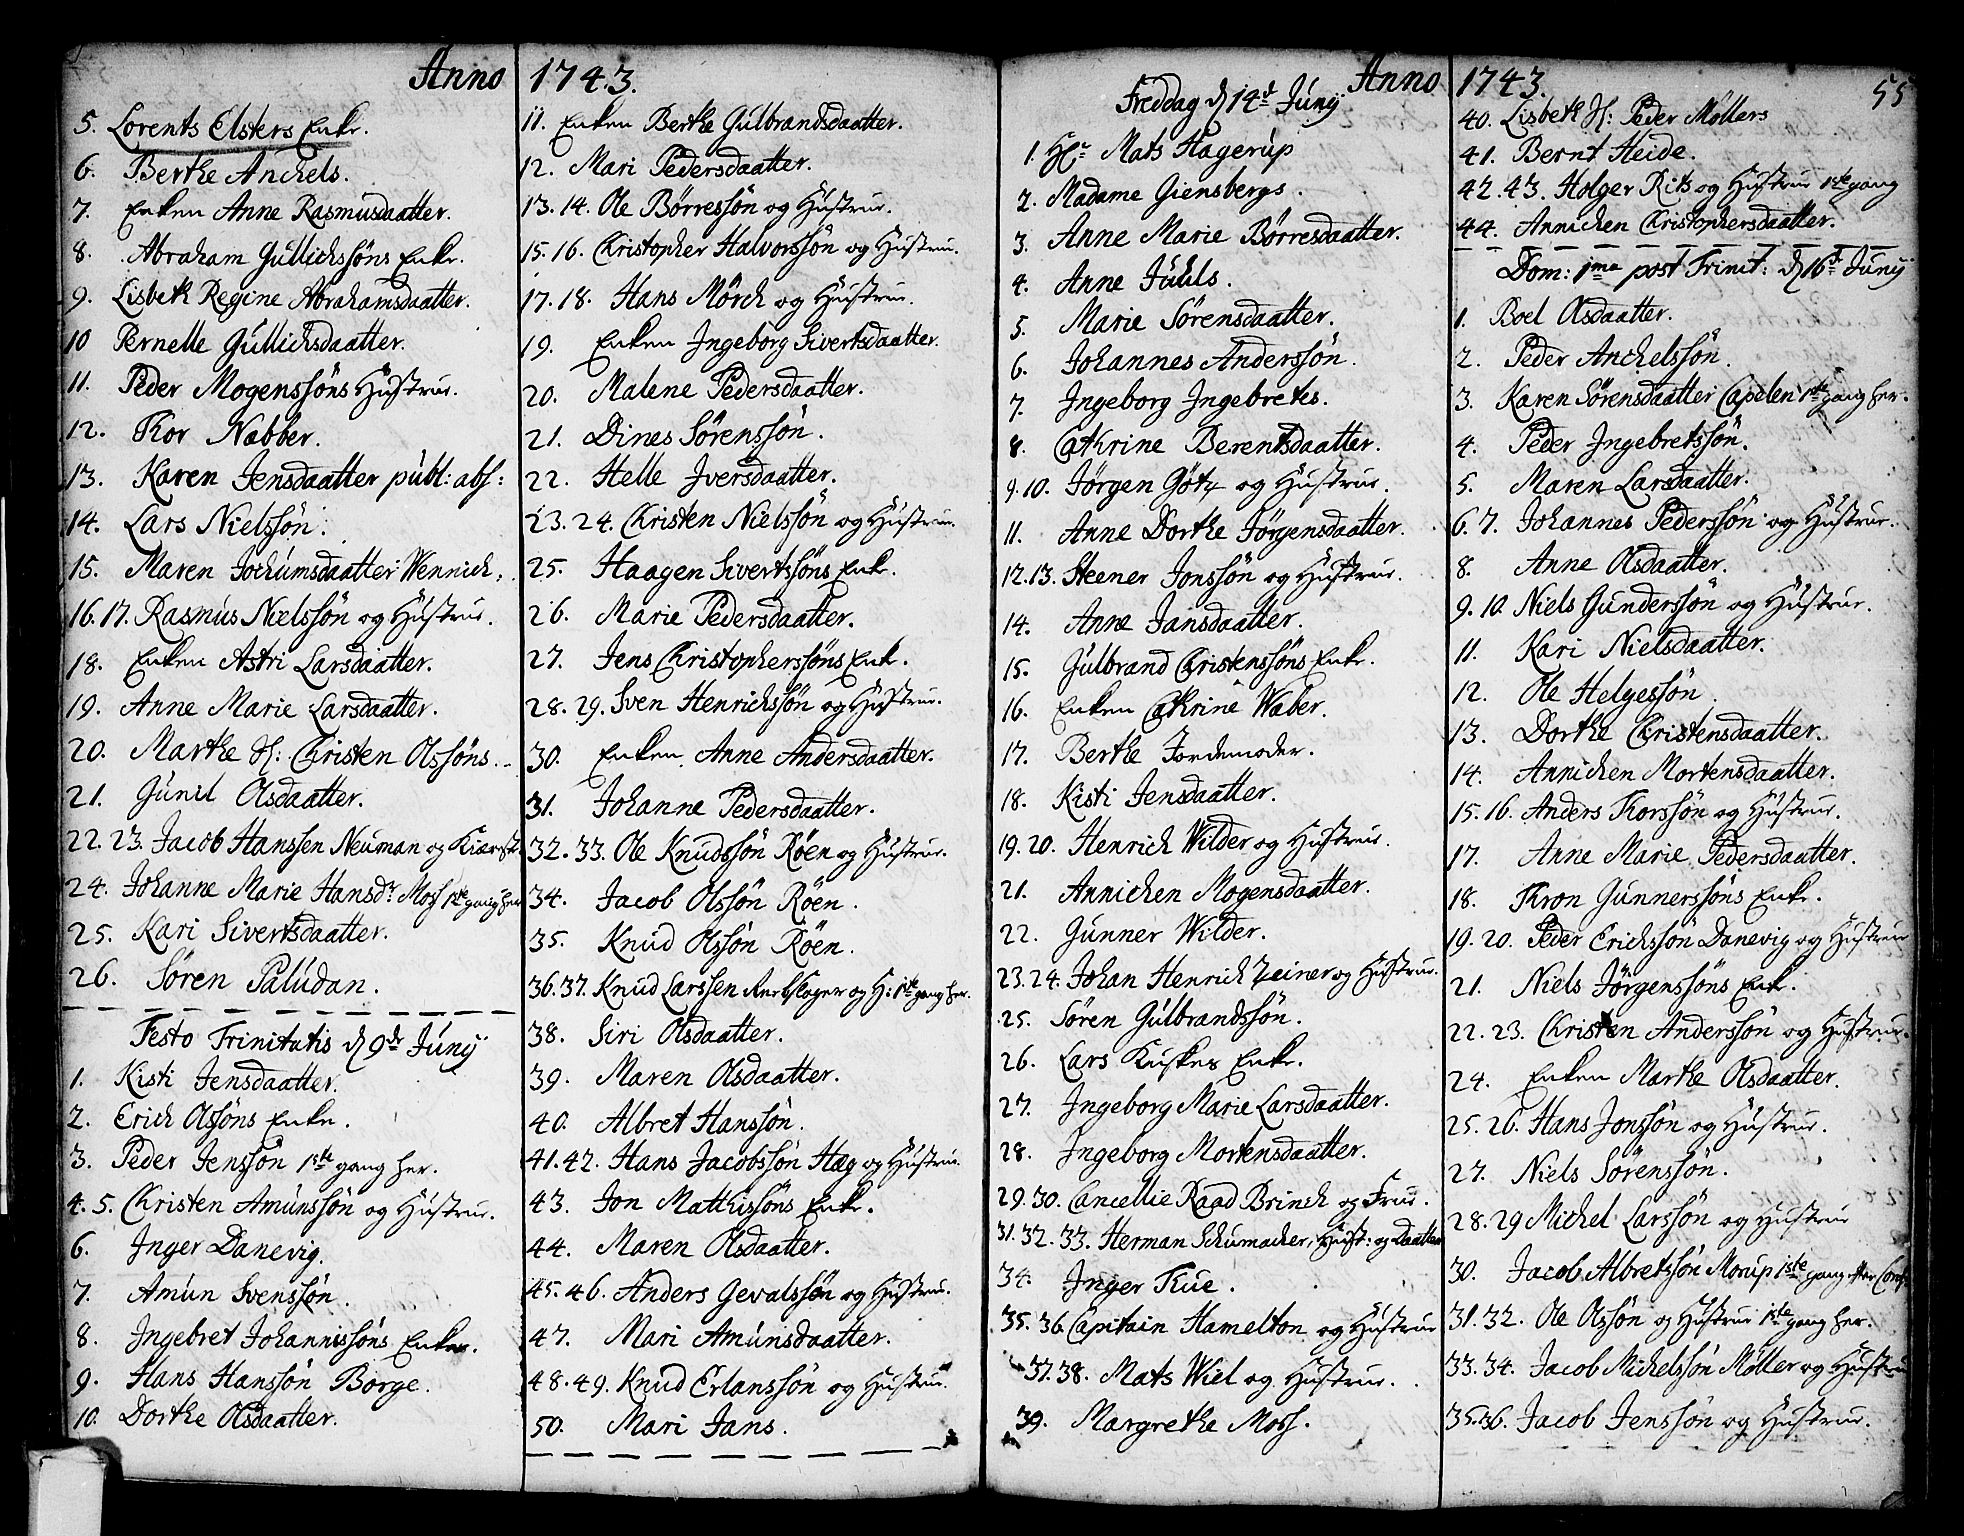 Anno 1743.
5. Lorents Elsters Enke.
6. Berthe Anchels.
7. Enken Anne Rasmusdaatter.
8. Abraham Gullichssöns Enke.
9. Lisbeth Regine Abrahamsdaatter.
10 Pernelle Gullichsdaatter.
11. Peder Mogenssöns Hustrue.
12. Thor Nabber.
13. Karen Jensdaatter publ: abs:
14. Lars Nielssön.
15. Maren Jochumsdaatter Wennich.
16. 17. Rasmus Nielssön og Hustrue.
18. Enken Astri Larsdaatter.
19. Anne Marie Larsdaatter.
20. Marthe H: Christen Olssöns.
21. Gunil Olsdaatter.
22. 23. Jacob Hanssen Neuman og Kiærest.
24. Johanne Marie Hansdr Moss 1ste gang her
25. Kari Sivertsdaatter.
26. Sören Paludan.
Festo Trinitatis d 9de Junij
1. Kisti Jensdaatter.
2. Erich Olssöns Enke.
3. Peder Jenssön 1ste gang her.
4. 5. Christen Amunssön og Hustrue.
6. Inger Danevig.
7. Amun Svenssön.
8. Ingebret Johannissöns Enke.
9. Hans Hanssön Borge.
10. Dorthe Olsdaatter.
11. Enken Berthe Gulbrandsdaatter.
12. Mari Pedersdaatter.
13. 14. Ole Börressön og Hustrue.
15. 16. Christopher Halvorssön og Hustrue.
17. 18. Hans Mörch og Hustrue.
19. Enken Ingeborg Sivertsdaatter.
20. Malene Pedersdaatter.
21. Dines Sörenssön.
22. Helle Iversdaatter.
23. 24. Christen Nielssön og Hustrue.
25. Haagen Sivertssöns Enke.
26. Marie Pedersdaatter.
27. Jens Christopherssöns Enke.
28. 29. Sven Henrichssön og Hustrue.
30. Enken Anne Andersdaatter.
31. Johanne Pedersdaatter.
32. 33. Ole Knudssön Röen og Hustrue.
34. Jacob Olssön Röen.
35. Knud Olssön Röen.
36. 37. Knud Larssen og H: 1ste gang her.
38. Siri Olsdaatter.
39. Maren Olsdaatter.
40. Albret Hanssön.
41. 42. Hans Jacobssön Hæg og Hustrue.
43. Jon Mathissöns Enke.
44. Maren Olsdaatter.
45. 46. Anders Gevalssön og Hustrue.
47. Mari Amunsdaatter.
48. 49. Knud Erlanssön og Hustrue.
50. Mari Jans.
Anno 1743. 55
Freddag d 14de Junij
1. Hr Mats Hagerup
2. Madame Giensbergs.
3. Anne Marie Börresdaatter.
4. Anne Juhls.
5. Marie Sörensdaatter.
6. Johannes Anderssön.
7. Ingeborg Ingebrets.
8. Cathrine Berentsdaatter.
9. 10. Jörgen Götz og Hustrue.
11. Anne Dorthe Jörgensdaatter.
12. 13. Steener Jonssön og Hustrue.
14. Anne Jansdaatter.
15. Gulbrand Christenssöns Enke.
16. Enken Cathrine Waber.
17. Berthe Jordemoder.
18. Kisti Jensdaatter.
19. 20. Henrich Wilder og Hustrue.
21. Annichen Mogensdaatter.
22. Gunner Wilder.
23. 24. Johan Henrich Zeiner og Hustrue.
25. Sören Gulbrandssön.
26. Lars Kuskes Enke.
27. Ingeborg Marie Larsdaatter.
28. Ingeborg Mortensdaatter.
29. 30. Cancellie Raad Brinch og Frue.
31. 32. 33. Herman Schumacher, Hust: og Daatter
34. Inger Thue.
35. 36. Capitain Hamelton og Hustrue
37. 38. Mats Wiel og Hustrue.
39. Margrethe Moss.
40. Lisbeth H: Peder Möllers
41. Bernt Heide.
42. 43. Holger Rits og Hustrue 1ste gang
44. Annichen Christophersdaatter.
Dom: 1ma post Trinit: d 16de Junij
1. Boel Olsdaatter.
2. Peder Anchelssön.
3. Karen Sörensdaatter Capelen 1ste gang her.
4. Peder Ingebretssön.
5. Maren Larsdaatter.
6. 7. Johannes Pederssön og Hustrue.
8. Anne Olsdaatter.
9. 10. Niels Gunderssön og Hustrue.
11. Kari Nielsdaatter.
12. Ole Helgessön
13. Dorthe Christensdaatter.
14. Annichen Mortensdaatter.
15. 16. Anders Thorssön og Hustrue.
17. Anne Marie Pedersdaatter.
18. Thron Gunnerssöns Enke.
19. 20. Peder Erichssön Danevig og Hustrue
21. Niels Jörgenssöns Enke.
22. 23. Christen Anderssön og Hustrue.
24. Enken Marthe Olsdaatter.
25. 26. Hans Jonssön og Hustrue.
27. Niels Sörenssön.
28. 29 Michel Larssön og Hustrue
30. Jacob Albretssön Morup 1ste gang efter Conf:
31. 32. Ole Olssön og Hustrue 1ste gang her.
33. 34. Jacob Michelssön Möller og Hustrue
35. 36. Jacob Jenssön og Hustrue.